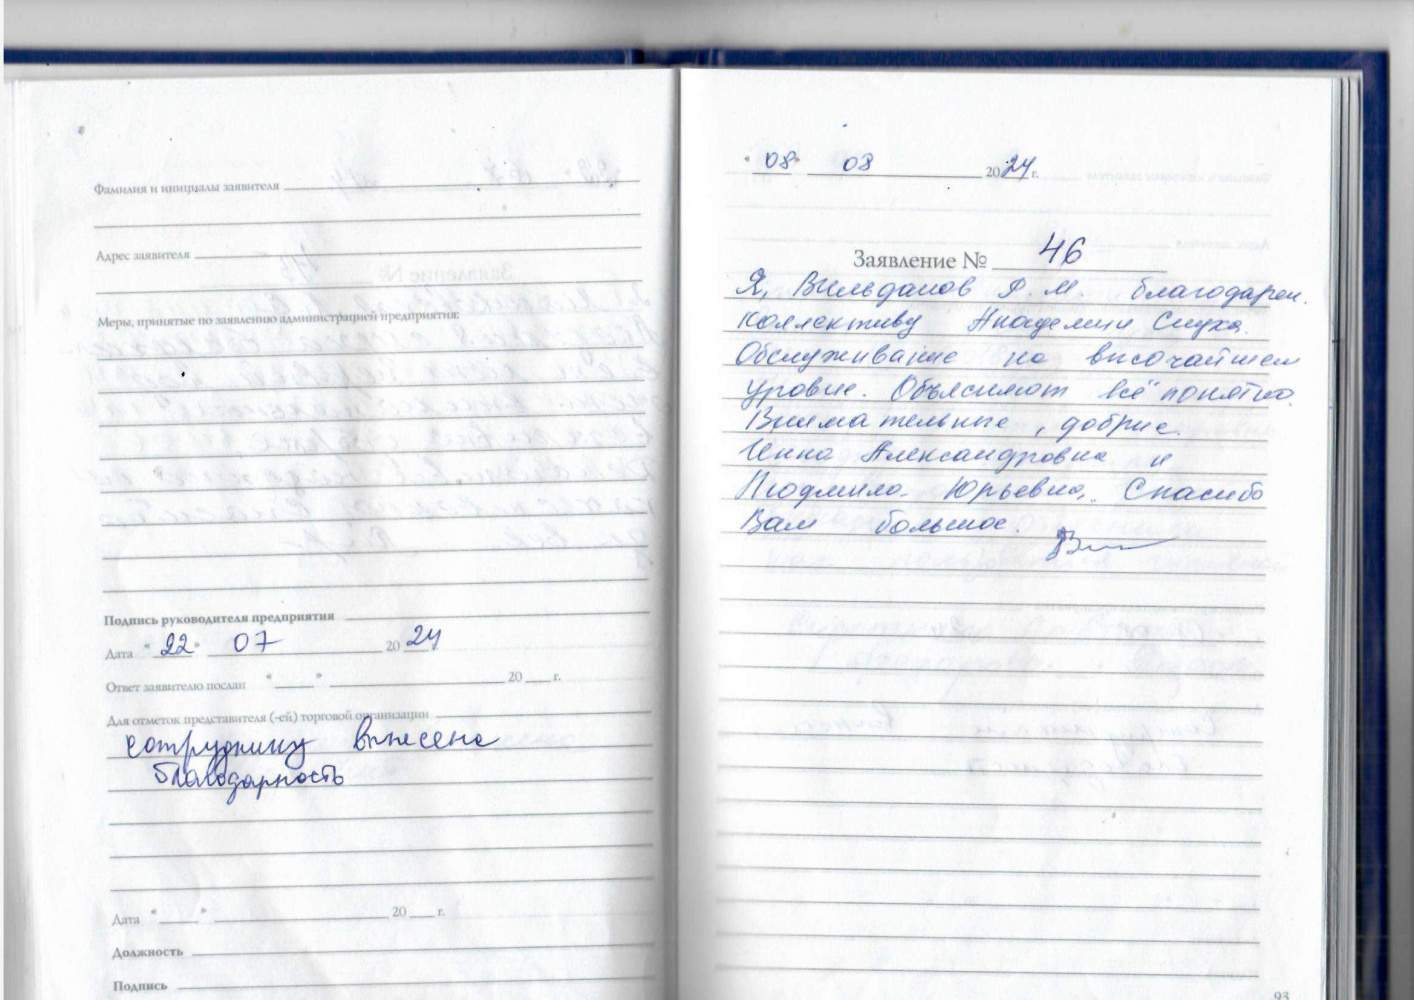 Фамилия и инициалы заявителя
Адрес заявителя
Меры, принятые по заявлению администрацией предприятия:
Подпись руководителя предприятия
Дата "22" 07 2024
Ответ заявителю послан " " 20 г.
Для отметок представителя (-ей) торговой организации
сотруднику вынесена
благодарность
Дата " " 20 г.
Должность
Подпись
"08" 08 2024 г.
Заявление № 46
Я, Вильданов Р.М. благодарен.
коллективу Академии Слуха.
Обслуживание на высочайшем
уровне. Объясняют всё понятно.
Внимательные, добрые.
Инна Александровна и
Людмила Юрьевна, Спасибо
Вам большое.
93